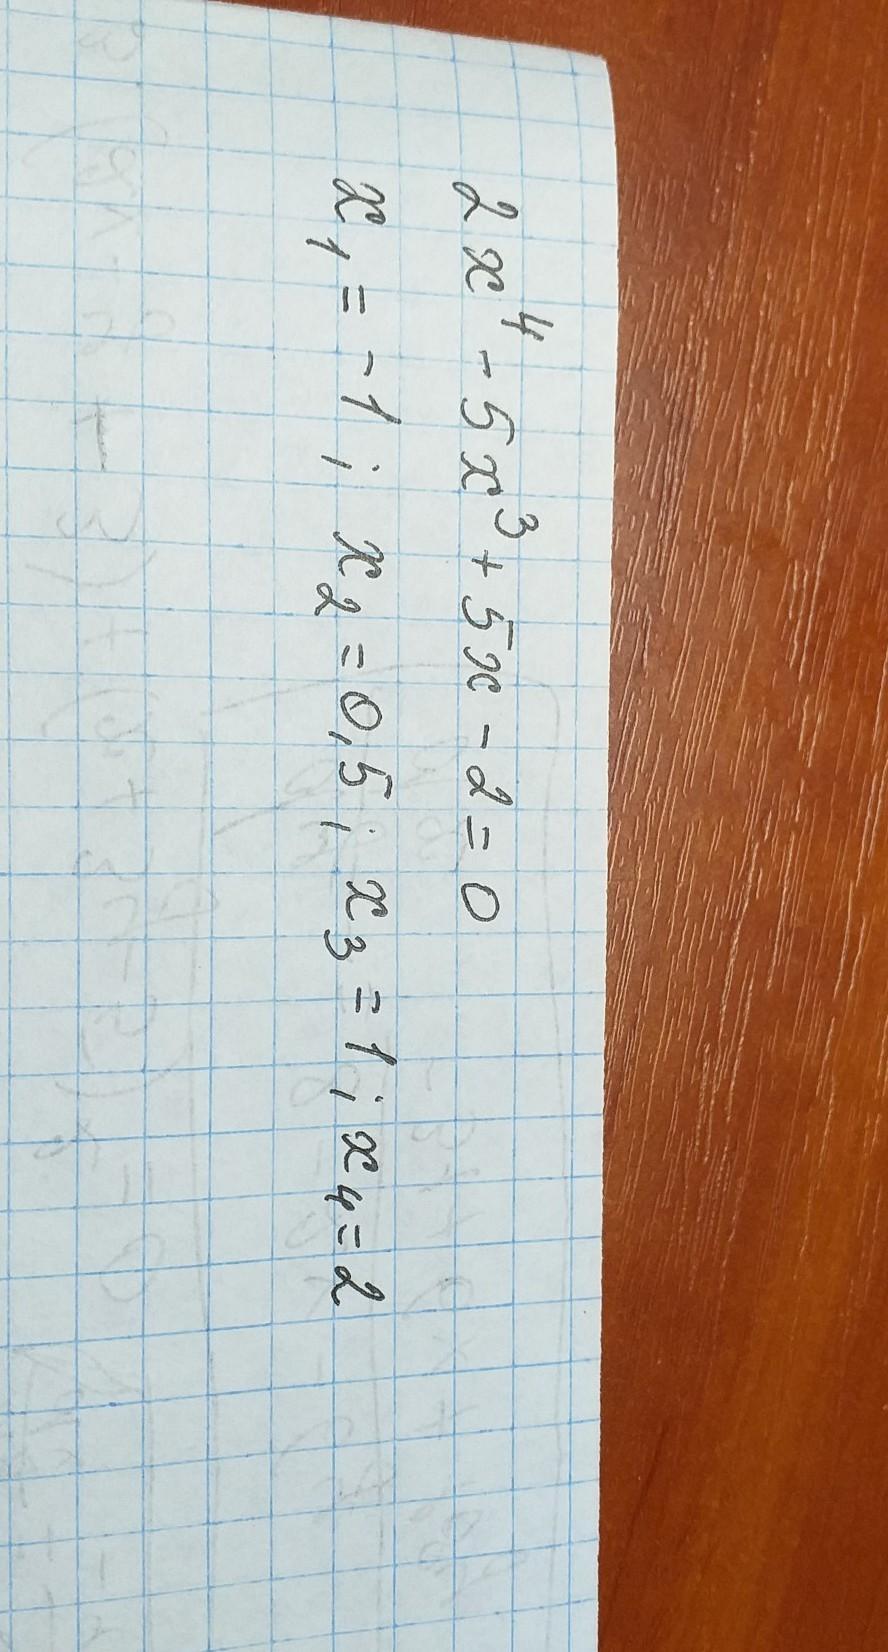 2x⁴ - 5x³ + 5x - 2 = 0
x₁ = -1; x₂ = 0,5; x₃ = 1; x₄ = 2